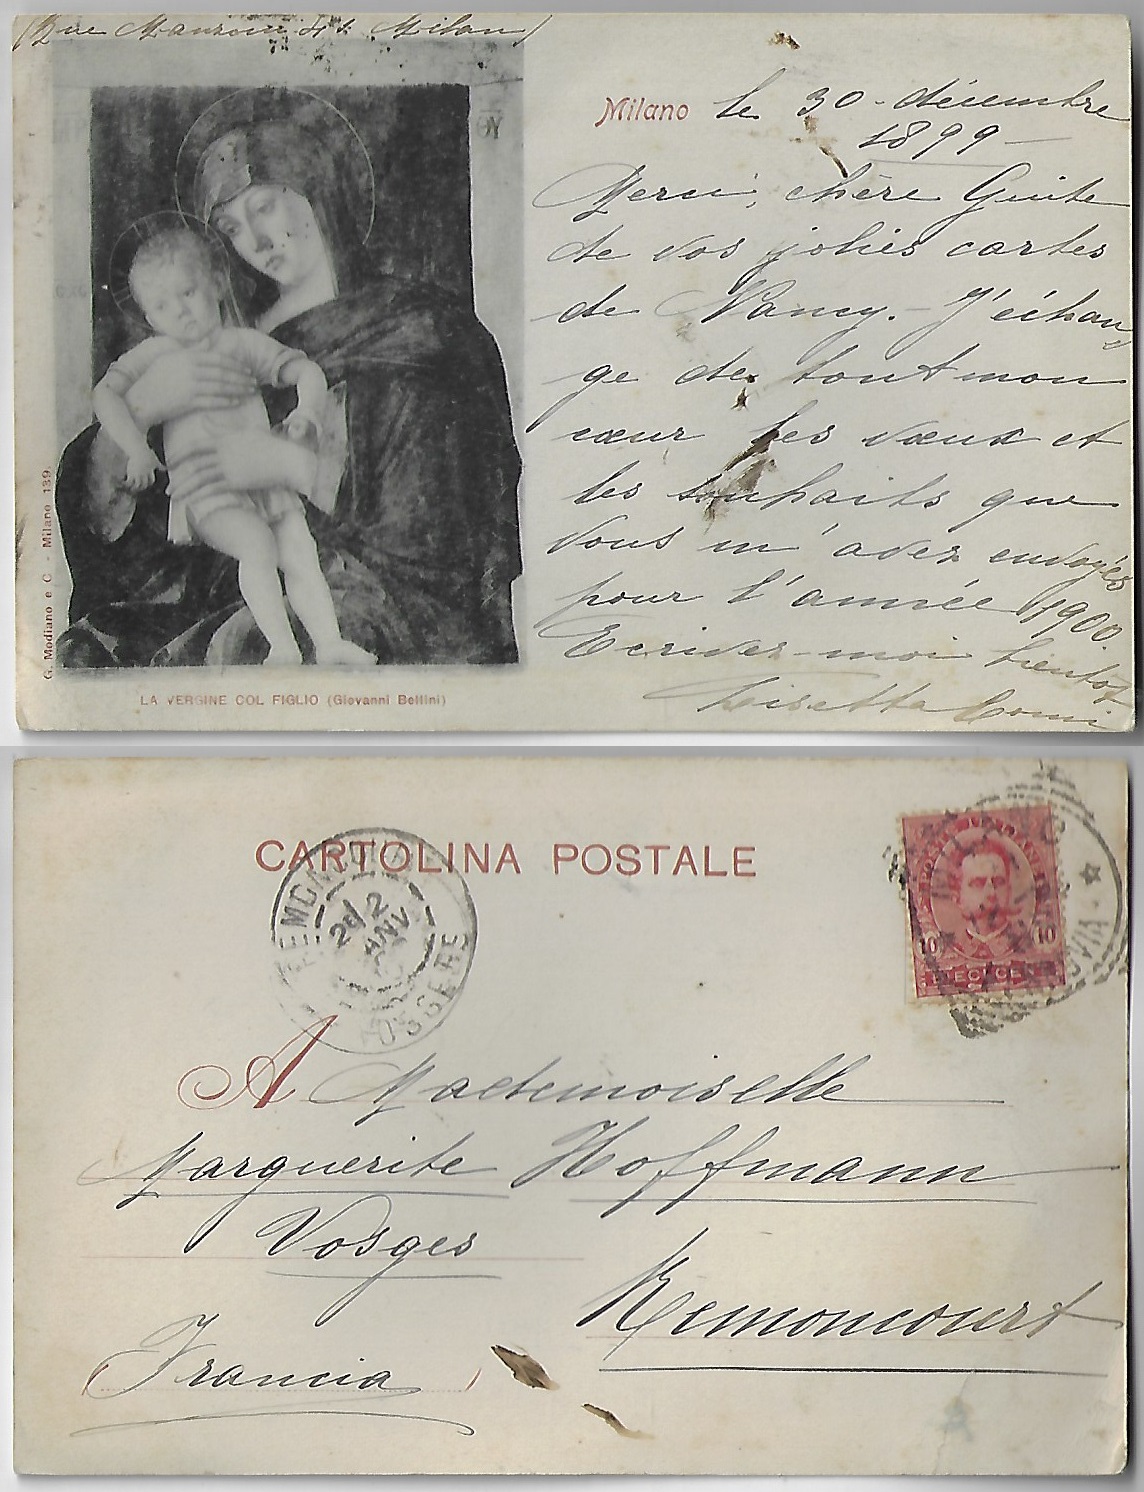 (Rue Manzoni 41 Milan)
Milano le 30 décembre
1899
Merci, chère Guite
de vos jolies cartes
de Nancy. - J'échan-
ge de tout mon
cœur les vœux et
les souhaits que
vous m'avez envoyés
pour l'année 1900
Ecrivez-moi bientot
Lisetta
G. Modiano e C. - Milano 139.
LA VERGINE COL FIGLIO (Giovanni Bellini)
CARTOLINA POSTALE
2
JANV
10 10
DIECI CENT
A Mademoiselle
Marguerite Hoffmann
Vosges
Remoncourt
Francia